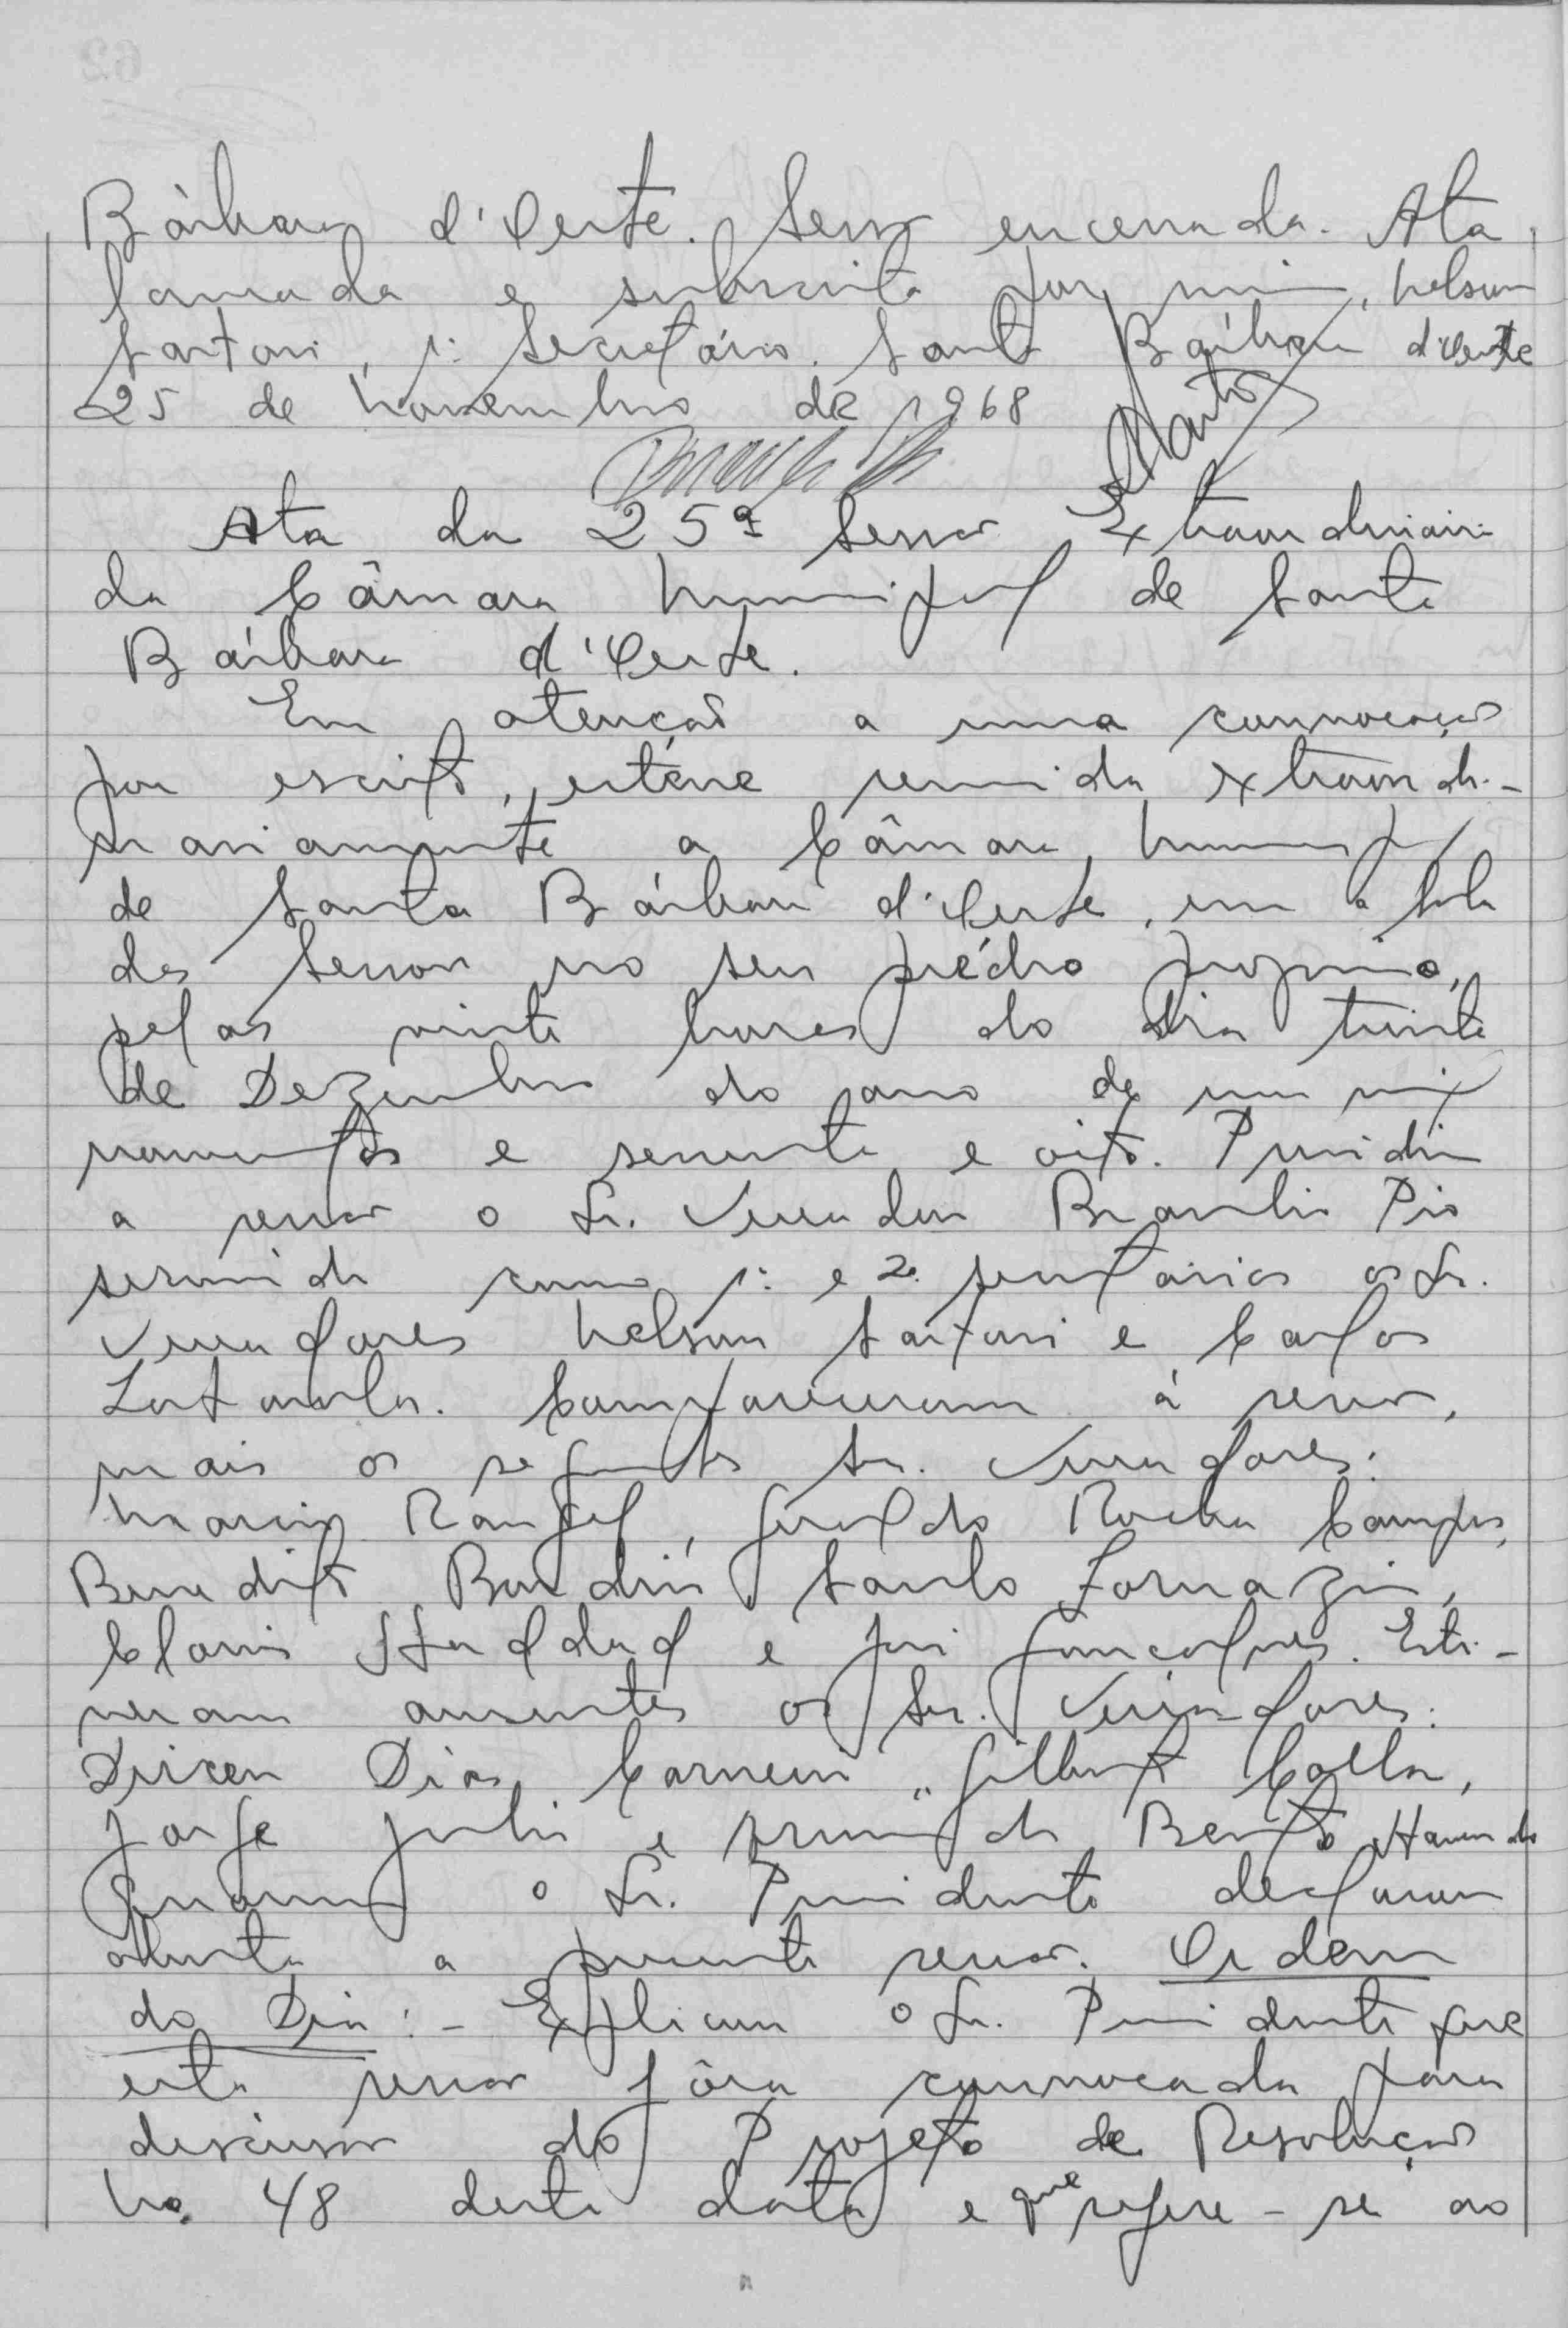 Bárbara d'Oeste. Sessão encerrada. Ata
lavrada e subscrita por mim, Nelson
Sartori, 1º Secretário. Santa Bárbara d'Oeste
25 de Novembro de 1968
Ata da 25ª Sessão Extraordinária
da Câmara Municipal de Santa
Bárbara d'Oeste.
Em atenção a uma convocação
por escrito, estéve reunida extraordi-
nariamente a Câmara Municipal
de Santa Bárbara d'Oeste, em a sala
das Sessões no seu prédio proprio,
pelas vinte horas do dia trinta
de Dezembro do ano de um mil
novecentos e sessenta e oito. Presidiu
a sessão o Sr. Vereador Brasilio Pio
servindo como 1º e 2º secretários os Sr.
Vereadores Nelson Sartori e Carlos
Compareceram à sessão,
mais os seguintes Srs. Vereadores:
Marcio Rangel, Geraldo Rocha Campos,
Benedito Santo Fornazin,
Clovis Haddad e José Gonçalves. Esti-
veram ausentes os Srs. Vereadores:
Dirceu Dias Carneiro, Gilberto
Jorge Julio e Bento. Havendo
o Sr. Presidente declarou
aberta a presente sessão. Ordem
do Dia: - Explicou o Sr. Presidente que
esta sessão fôra convocada para
discussão do Projeto de Resolução
No. 48 desta data e que refere-se ao